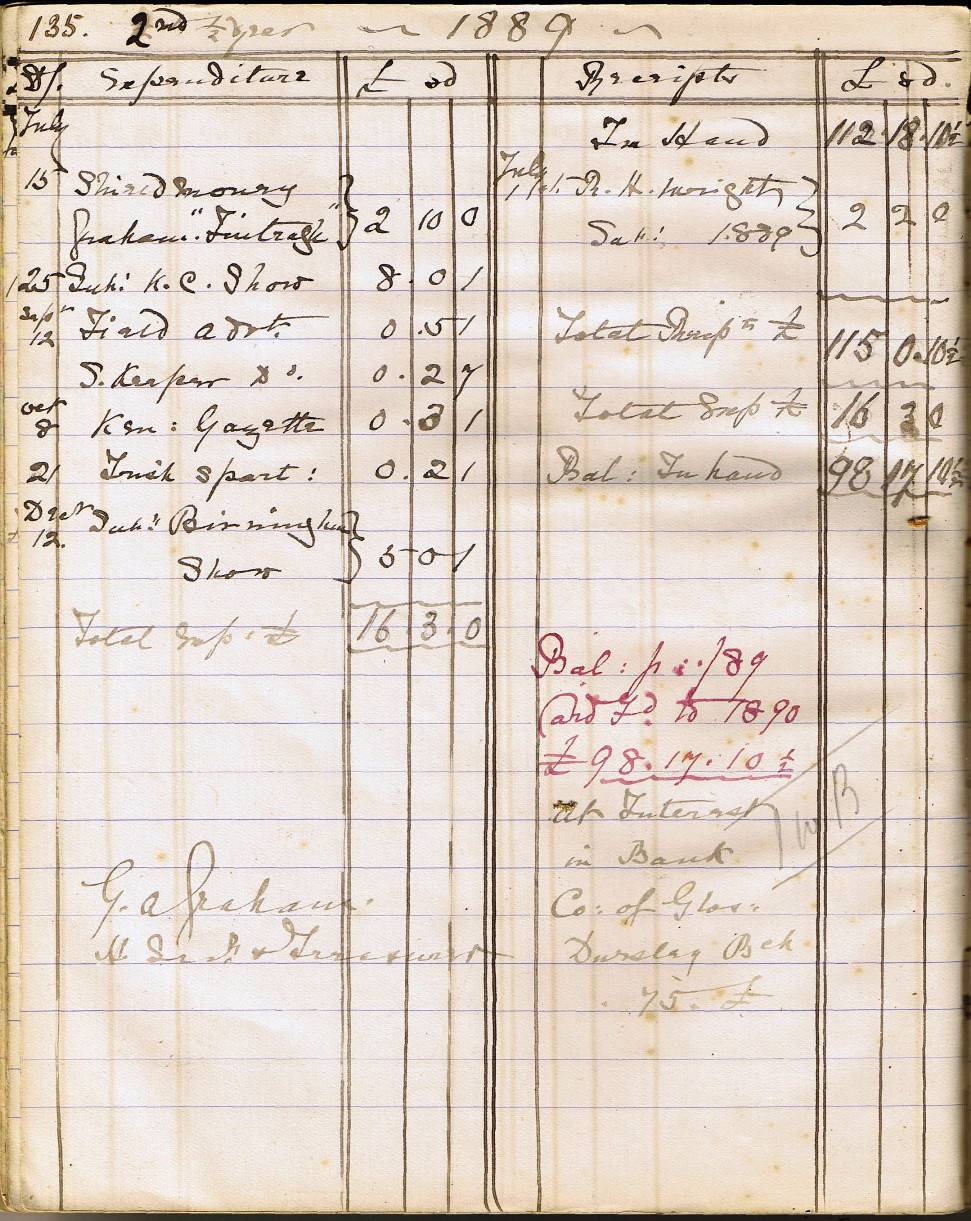 135. 2nd ½ year ~ 1889 ~
Dt. Expenditure £ s d
July
15 Shield money
Graham "Fintragh" } 2 10 0
25 Sub: K. C. Show 8. 0 1
Sept 12 Field advt. 0 .5 1
S. Keeper Do. 0. 2 7
Oct 8 Ken: Gazette 0 . 3 1
21 Irish Sport: 0. 2 1
Decr 12. Sub: Birmingham
Show } 5 0 1
Total Exp: £ 16.3.0
G. A Graham.
H Sec & Treasurer
Receipts £ s d.
In Hand 112.18.10½
July R. H. Wright
Sub: 1889 } 2 2 0
Total Receipts £ 115 0.10½
Total Exp £ 16 3 0
Bal: In hand 98 17 10½
Bal: /89
Card Fd. to 1890
£ 98.17.10 ½
at Interest
in Bank
Co: of Glos:
Dursley Bch
75. £